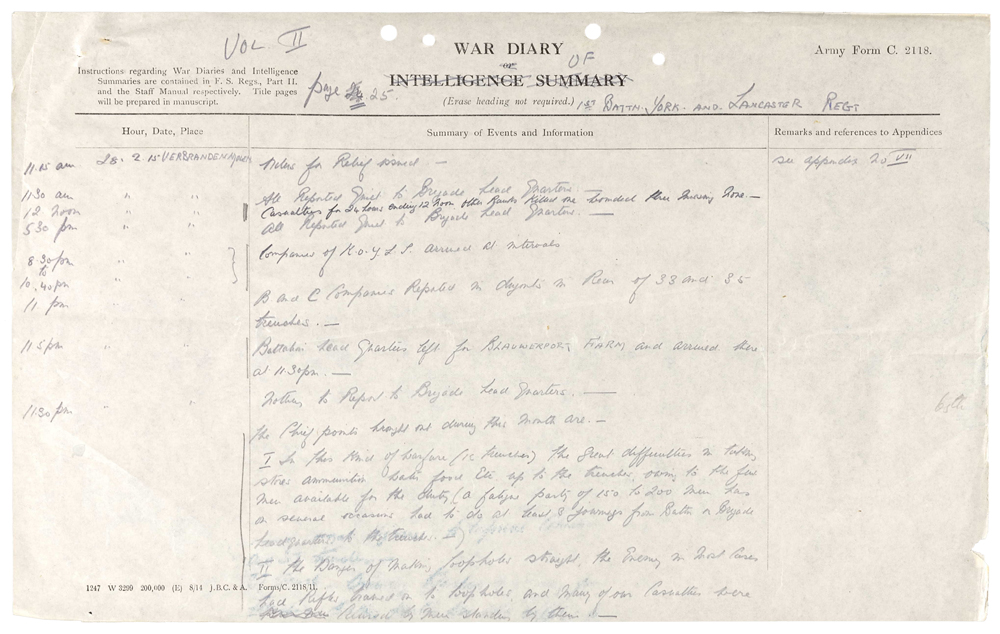 VOL II
WAR DIARY
or OF
INTELLIGENCE SUMMARY
(Erase heading not required.)
Army Form C. 2118.
Instructions regarding War Diaries and Intelligence
Summaries are contained in F. S. Regs., Part II.
and the Staff Manual respectively. Title pages
will be prepared in manuscript.
page 25.
1st BATTN. YORK. AND LANCASTER REGT
Hour, Date, Place
Summary of Events and Information
Remarks and references to Appendices
11.15 am 28. 2. 15 VERBRANDENMOLEN Orders for Relief issued. — see appendix 20 VII
11.30 am " " All Reported Quiet to Brigade Head Quarters. —
12 noon " " Casualties for 24 hours ending 12 Noon other Ranks Killed one wounded three Missing None. —
5.30 pm " " All Reported Quiet to Brigade Head Quarters. —
8.30 pm " " Companies of K.O.Y.L.I. arrived at intervals
to
10.40 pm " "
11 pm B and C Companies Reported in dugouts in Rear of 33 and 35
trenches. —
11.5 pm " " Battalion Head Quarters left for BLAUWEPOORT FARM and arrived there
at 11.30 pm. —
11.30 pm " " Nothing to Report to Brigade Head Quarters. —
The Chief points brought out during this Month are. —
I In this Kind of warfare (ie trenches) the Great difficulties in taking
stores ammunition food Etc up to the trenches, owing to the few
men available for the duty (a fatigue party of 150 to 200 men has
on several occasions had to do at least 3 journeys from Battn or Brigade
headquarters to the trenches.
II The Danger of Making loopholes straight, the Enemy in most cases
had Rifles trained on to loopholes and many of our Casualties were
by men standing by them —
1247 W 3299 200,000 (E) 8/14 J.B.C. & A. Forms/C. 2118/11.